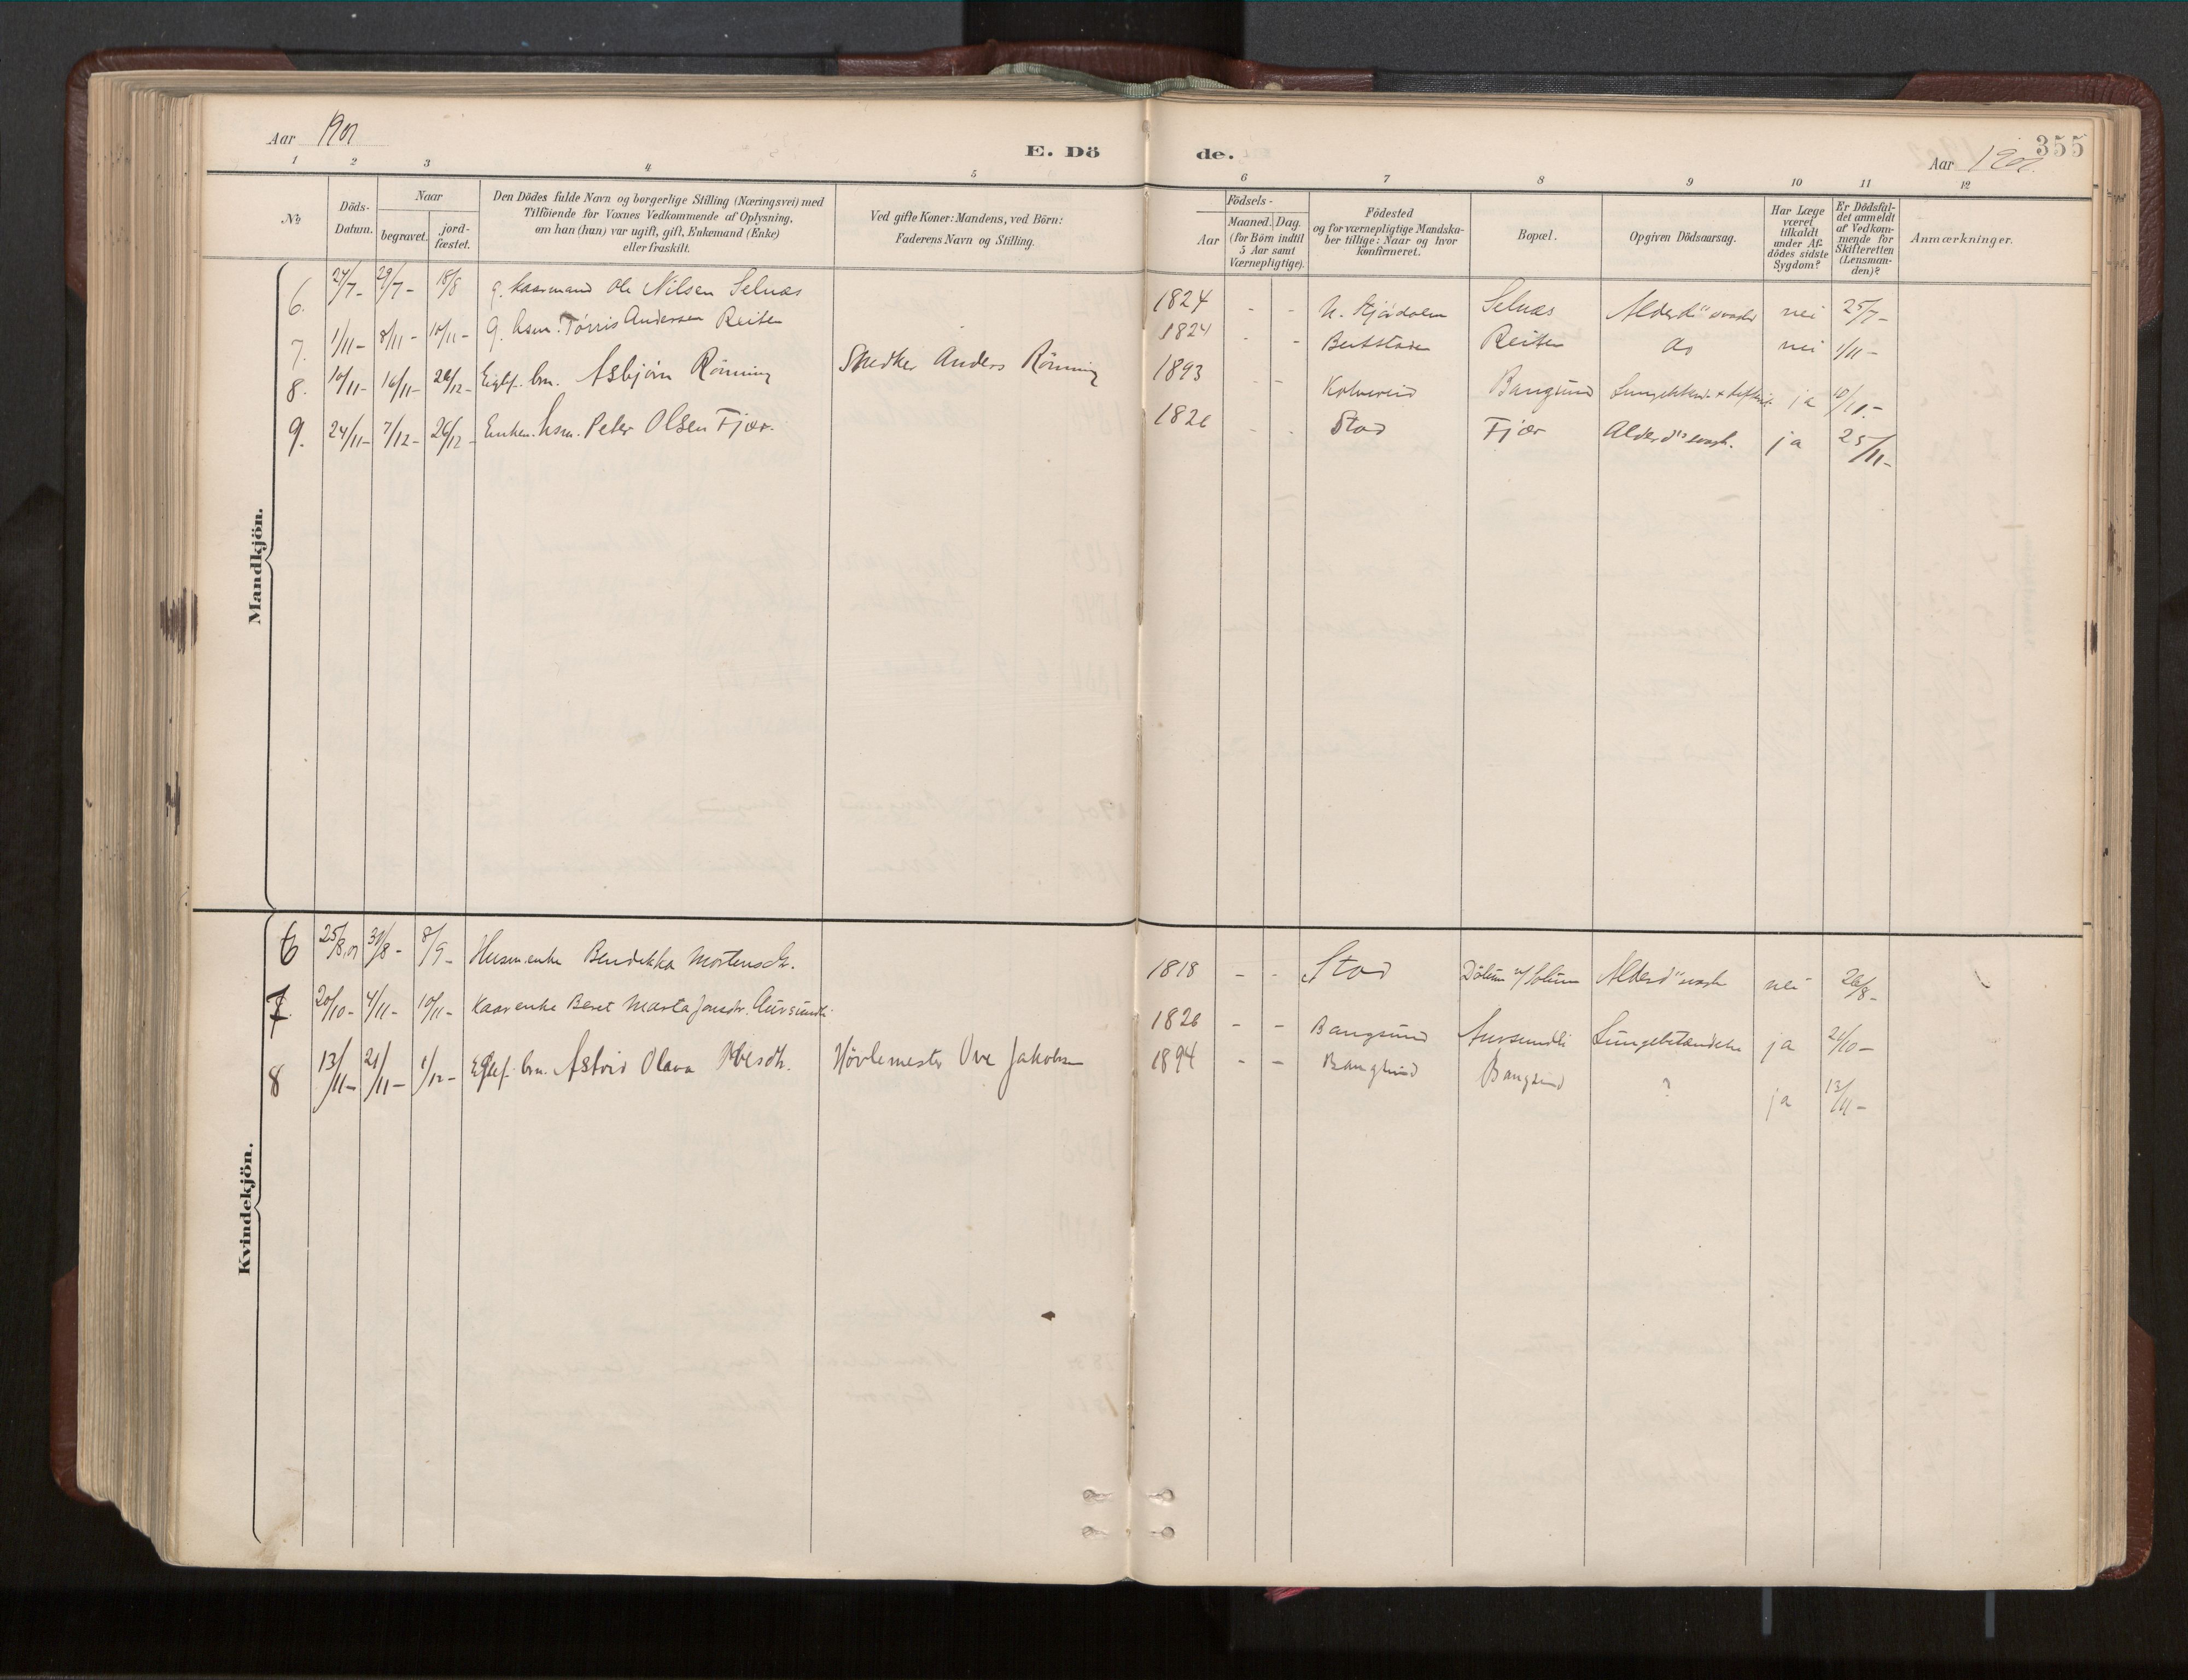 Aar 1901
E. Dö
de.
355
Aar 1901.
1 2 3 4 5 6 7 8 9 10 11 12
№
Döds-
Datum.
Naar
begravet.
jord-
fæstet.
Den Dödes fulde Navn og borgerlige Stilling (Næringsvei) med
Tilföiende for Voxnes Vedkommende af Oplysning,
om han (hun) var ugift, gift, Enkemand (Enke)
eller fraskilt.
Ved gifte Koner: Mandens, ved Börn:
Faderens Navn og Stilling.
Födsels-
Aar
Maaned. Dag.
(for Börn indtil
5 Aar samt
Værnepligtige).
Födested
og for værnepligtige Mandska-
ber tillige: Naar og hvor
konfirmeret.
Bopæl.
Opgiven Dödsaarsag.
Har Læge
været
tilkaldt
under Af-
dödes sidste
Sygdom?
Er Dödsfal-
det anmeldt
af Vedkom-
mende for
Skifteretten
(Lensman-
den)?
Anmærkninger.
Mandkjön.
6. 24/7 - 29/7 - 18/8 g. kaarmand Ole Nilsen Selnæs 1824 - - N. Stjördalen Selnæs Alderd" nei 25/7 -
7. 1/11 - 8/11 - 10/11 - g. hsm. Törris Andersen Reiten 1824 - - Beitstaden Reiten do nei 1/11 -
8. 10/11 - 16/11 - 26/12 - brn. Asbjörn Rönning Snedker Anders Rönning 1893 - - Kolvereid Bangsund ja 10/11.-
9. 24/11 - 7/12 - 26/12 - Enkem. hsm. Peter Olsen Fjær. 1826 - - Stod Fjær Alderd" svagh. ja 25/11 -
Kvindekjön.
6 25/8.01 31/8 - 8/9 - Husm.enke Bendikka Mortensdt. 1818 - - Stod Alderd" svagh nei 26/8 -
7. 20/10 - 4/11 - 10/11 - Kaarenke Beret Marta Jonsdtr. Aursundli 1826 - - Bangsund Aursundli Lungebetændelse ja 21/10 -
8 13/11 - 21/11 - 1/12 - brn. Astrid Olava Ovesdt. Hövlemester Ove Jakobsen 1894 - - Bangsund Bangsund ? ja 13/11 -